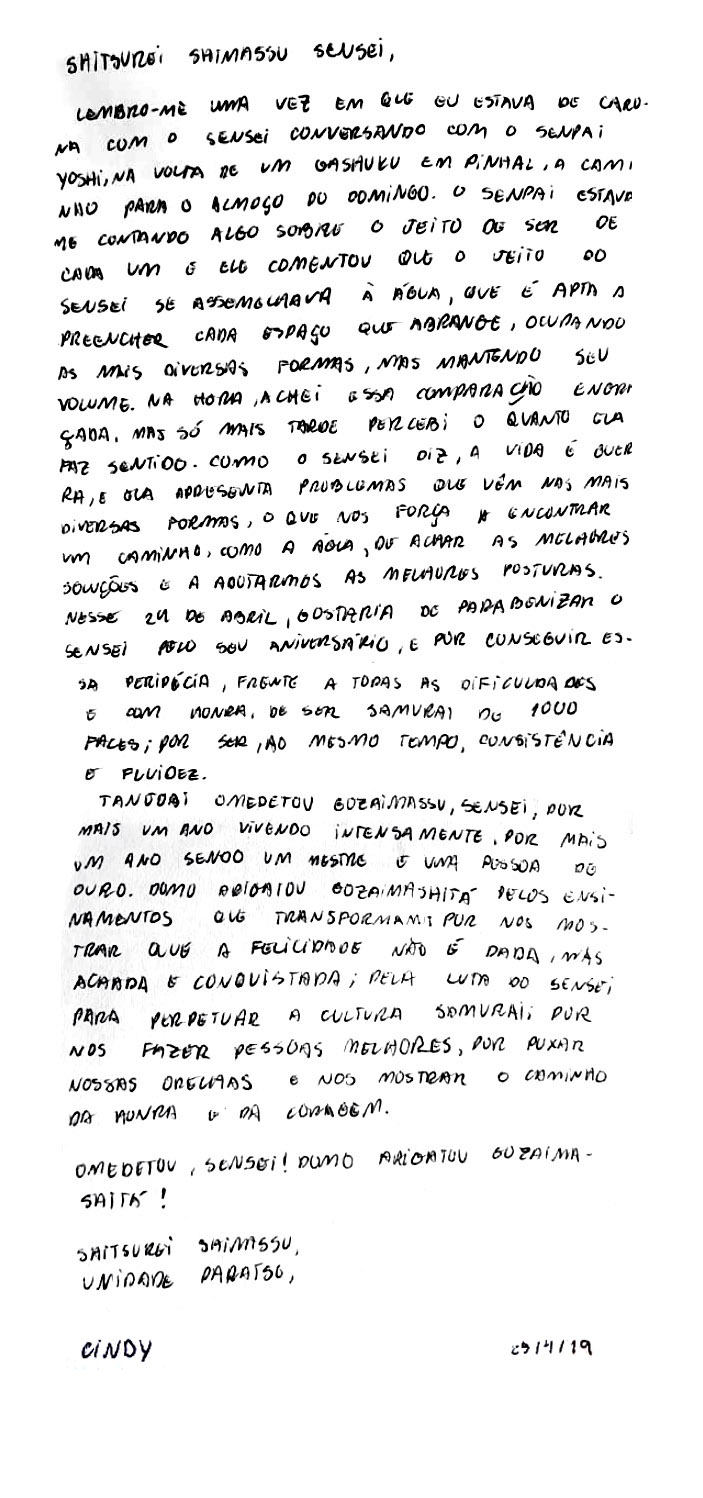 SHITSUREI SHIMASSU SENSEI,
LEMBRO-ME UMA VEZ EM QUE EU ESTAVA DE CARO-
NA COM O SENSEI CONVERSANDO COM O SENPAI
YOSHI, NA VOLTA DE UM GASHUKU EM PINHAL, A CAMI
NHO PARA O ALMOÇO DO DOMINGO. O SENPAI ESTAVA
ME CONTANDO ALGO SOBRE O JEITO DE SER DE
CADA UM E ELE COMENTOU QUE O JEITO DO
SENSEI SE ASSEMELHAVA À ÁGUA, QUE É APTA A
PREENCHER CADA ESPAÇO QUE ABRANGE, OCUPANDO
AS MAIS DIVERSAS FORMAS, MAS MANTENDO SEU
VOLUME. NA HORA, ACHEI ESSA COMPARAÇÃO ENGRA
ÇADA, MAS SÓ MAIS TARDE PERCEBI O QUANTO ELA
FAZ SENTIDO. COMO O SENSEI DIZ, A VIDA É GUER
RA, E ELA APRESENTA PROBLEMAS QUE VÊM NAS MAIS
DIVERSAS FORMAS, O QUE NOS FORÇA A ENCONTRAR
UM CAMINHO, COMO A ÁGUA, DE ACHAR AS MELHORES
SOLUÇÕES E A ADOTARMOS AS MELHORES POSTURAS.
NESSE 24 DE ABRIL, GOSTARIA DE PARABENIZAR O
SENSEI PELO SEU ANIVERSÁRIO, E POR CONSEGUIR ES-
SA PERIPÉCIA, FRENTE A TODAS AS DIFICULDADES
E COM HONRA, DE SER SAMURAI DE 1000
FACES; POR SER, AO MESMO TEMPO, CONSISTÊNCIA
E FLUIDEZ.
TANJOBI OMEDETOU GOZAIMASSU, SENSEI, POR
MAIS UM ANO VIVENDO INTENSAMENTE, POR MAIS
UM ANO SENDO UM MESTRE E UMA PESSOA DE
OURO. DOMO ARIGATOU GOZAIMASHITÁ PELOS ENSI-
NAMENTOS QUE TRANSFORMAM; POR NOS MOS-
TRAR QUE A FELICIDADE NÃO É DADA, MAS
ACHADA E CONQUISTADA; PELA LUTA DO SENSEI
PARA PERPETUAR A CULTURA SAMURAI; POR
NOS FAZER PESSOAS MELHORES, POR PUXAR
NOSSAS ORELHAS E NOS MOSTRAR O CAMINHO
DA HONRA E DA CORAGEM.
OMEDETOU, SENSEI! DOMO ARIGATOU GOZAIMA-
SHITÁ!
SHITSUREI SHIMASSU,
UNIDADE PARAÍSO,
CINDY 29/4/19